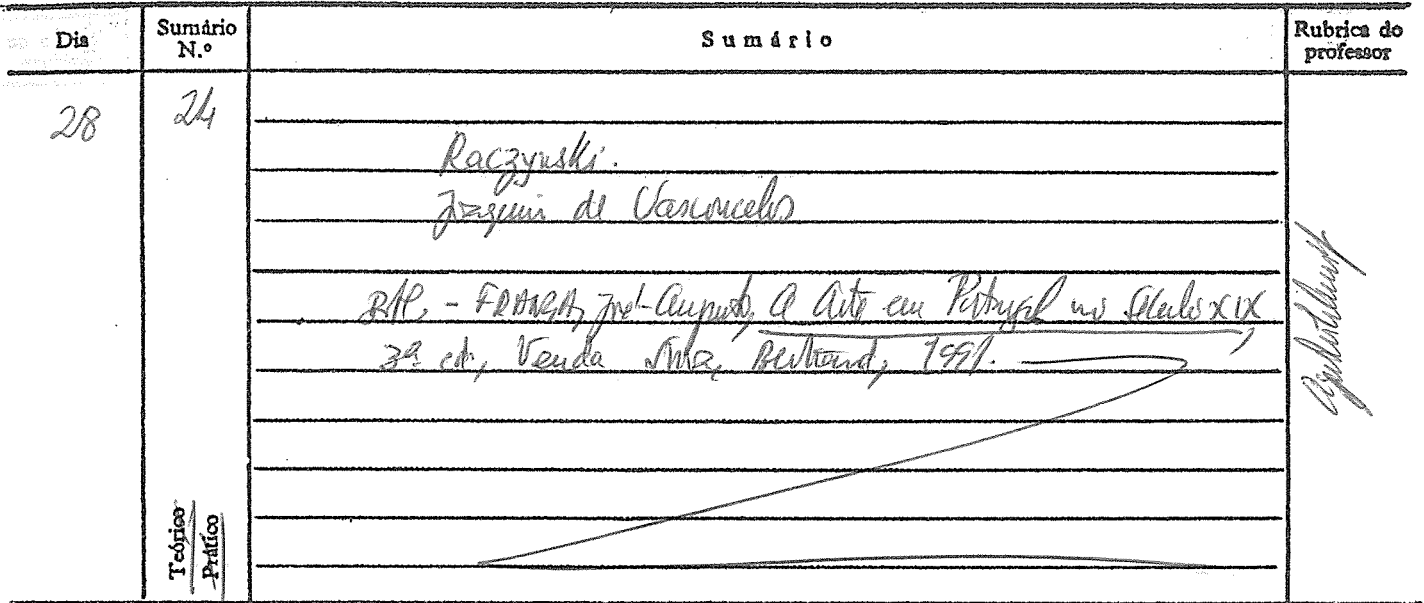 Dia Sumário N.º Sumário Rubrica do professor
28 24
Raczynski.
Joaquim de Vasconcelos
- FRANÇA, José-Augusto, A Arte em Portugal no Século XIX,
3ª ed., Venda Nova, Bertrand, 1991.
Teórico
Prático